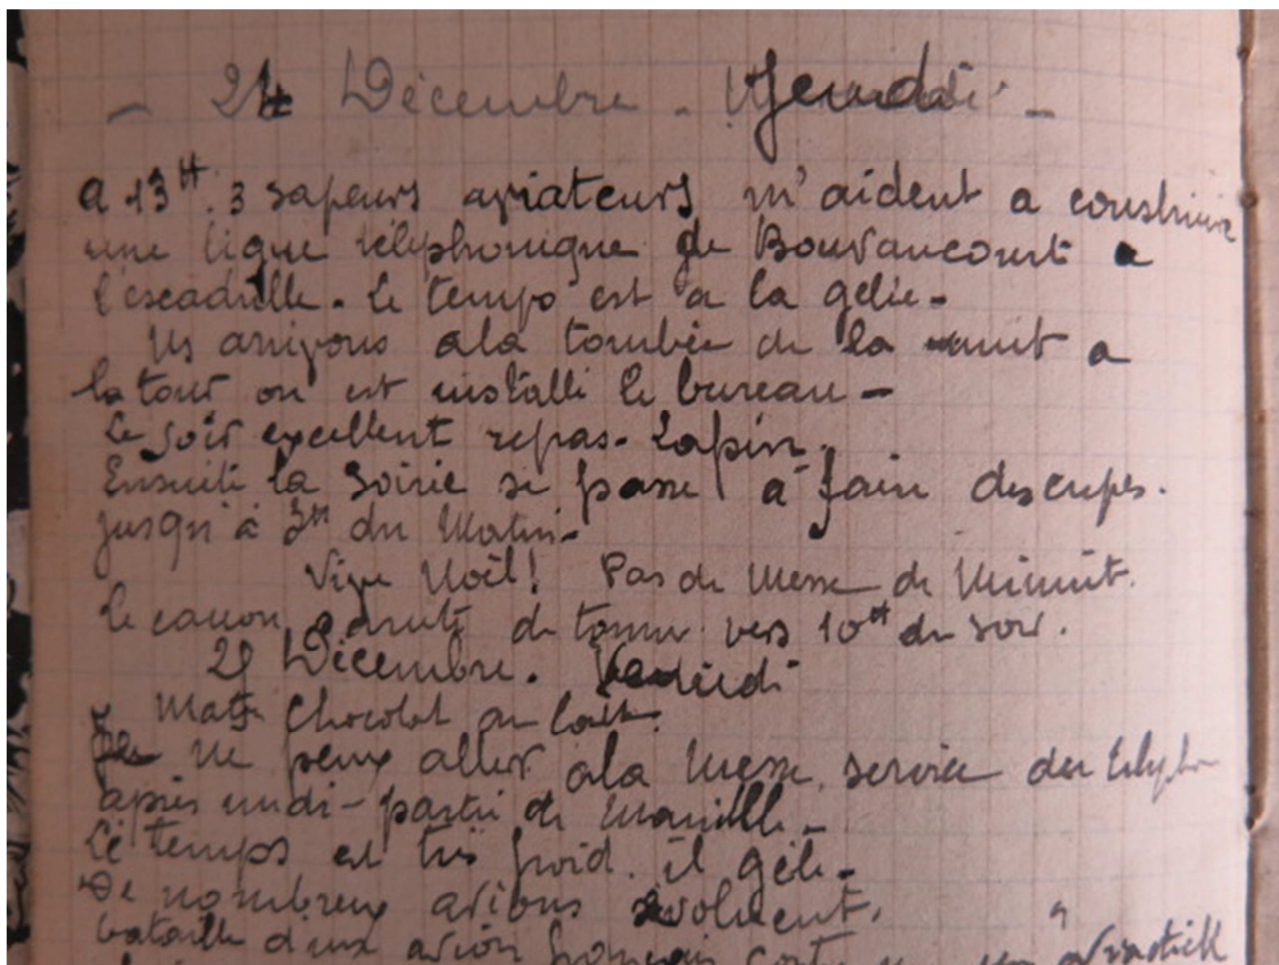 - 24 Décembre - Jeudi -
A 13H. 3 sapeurs aviateurs m'aident a construire
une ligne téléphonique de Bouvancourt a
l'escadrille. Le temps est a la gelée -
Ns arrivons a la tombée de la nuit a
la tour ou est installé le bureau -
Le soir excellent repas - Lapin.
Ensuite la Soirée se passe à faire des crepes.
jusqu'à 3H du Matin -
Vive Noël! Pas de Messe de Minuit.
le canon de tonner vers 10H du soir.
25 Décembre. Vendredi
Matin Chocolat au lait.
Je ne peux aller a la Messe, service du
après midi - partie de Manille -
Le temps est très froid. il gèle -
De nombreux avions évoluent.
bataille d'un avion français contre un